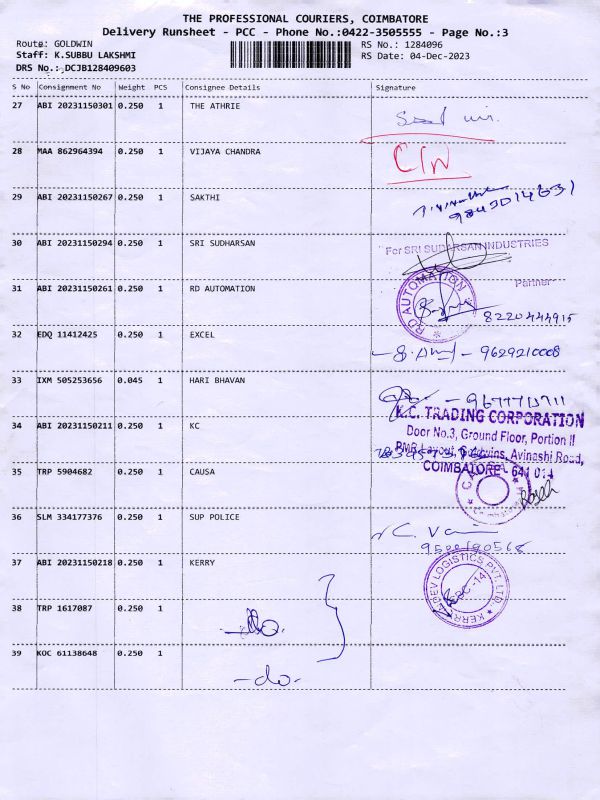 THE PROFESSIONAL COURIERS, COIMBATORE
Delivery Runsheet - PCC - Phone No.:0422-3505555 - Page No.:3
Route: GOLDWIN
RS No.: 1284096
Staff: K.SUBBU LAKSHMI
RS Date: 04-Dec-2023
DRS No.: DCJB128409603
S No Consignment No Weight PCS Consignee Details Signature
27 ABI 20231150301 0.250 1 THE ATHRIE
28 MAA 862964394 0.250 1 VIJAYA CHANDRA
CIN
29 ABI 20231150267 0.250 1 SAKTHI
9843014631
30 ABI 20231150294 0.250 1 SRI SUDHARSAN
For SRI SUDARSAN INDUSTRIES
Partner
31 ABI 20231150261 0.250 1 RD AUTOMATION
RD AUTOMATION
8220444915
32 EDQ 11412425 0.250 1 EXCEL
9629210008
33 IXM 505253656 0.045 1 HARI BHAVAN
34 ABI 20231150211 0.250 1 KC
K.C. TRADING CORPORATION
Door No.3, Ground Floor, Portion II
PMR Layout, Goldwins, Avinashi Road,
COIMBATORE - 641 014
35 TRP 5904682 0.250 1 CAUSA
36 SLM 334177376 0.250 1 SUP POLICE
37 ABI 20231150218 0.250 1 KERRY
KERRY INDEV LOGISTICS PVT. LTD.
CBC-14
38 TRP 1617087 0.250 1
-do.
39 KOC 61138648 0.250 1
-do-